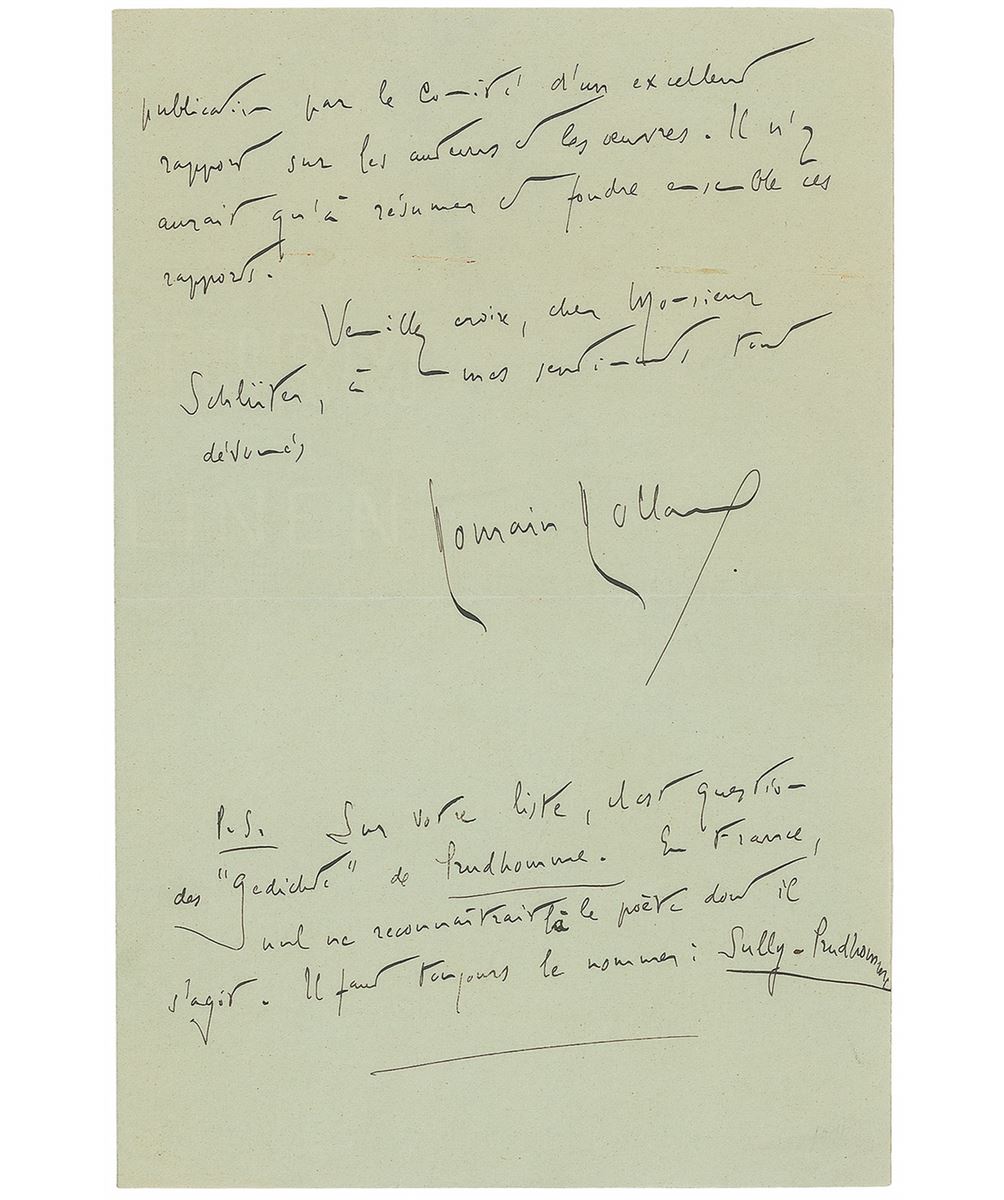 publication par le Comité d'un excellent
rapport sur les auteurs et les œuvres. Il n'y
aurait qu'à résumer et fondre ensemble ces
rapports.
Veuillez croire, cher Monsieur
Schlüter, à mes sentiments tout
dévoués
Romain Rolland.
P.S. Sur votre liste, il est question
des "Gedichte" de Prudhomme. En France,
nul ne reconnaîtrait là le poète dont il
s'agit. Il faut toujours le nommer : Sully-Prudhomme